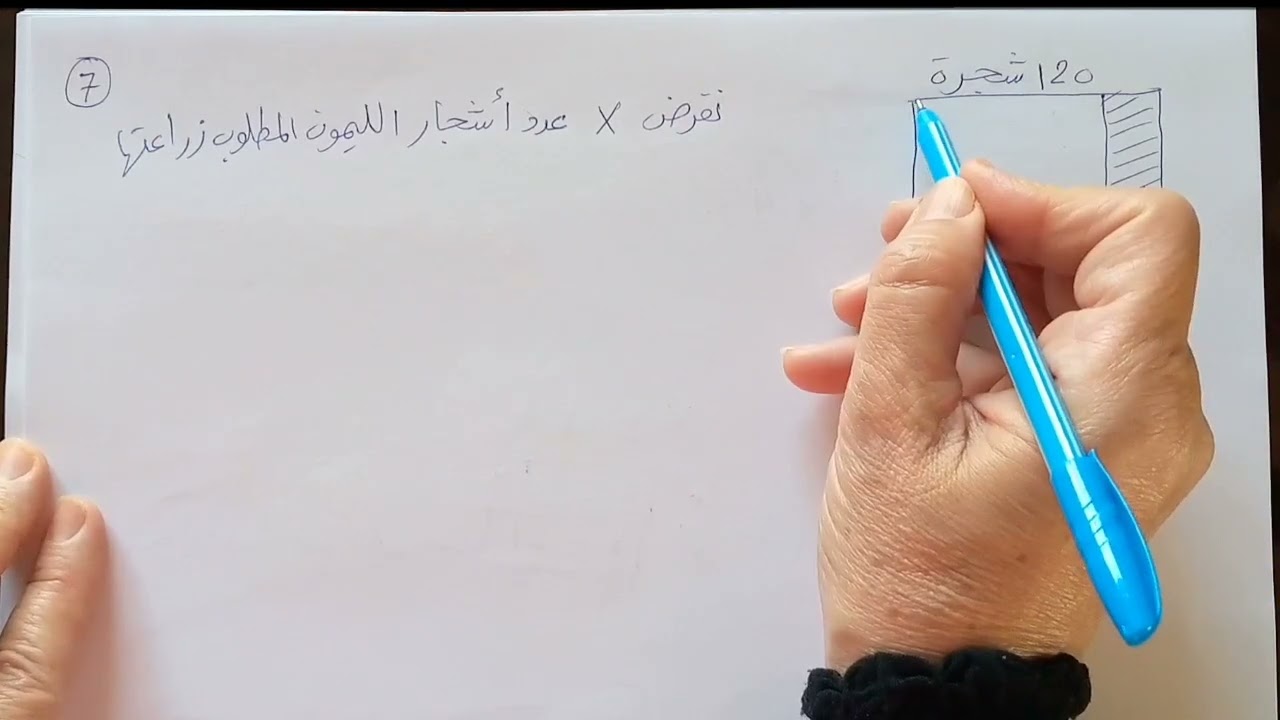 7
نفرض X عدد أشجار الليمون المطلوب زراعتها
120 شجرة